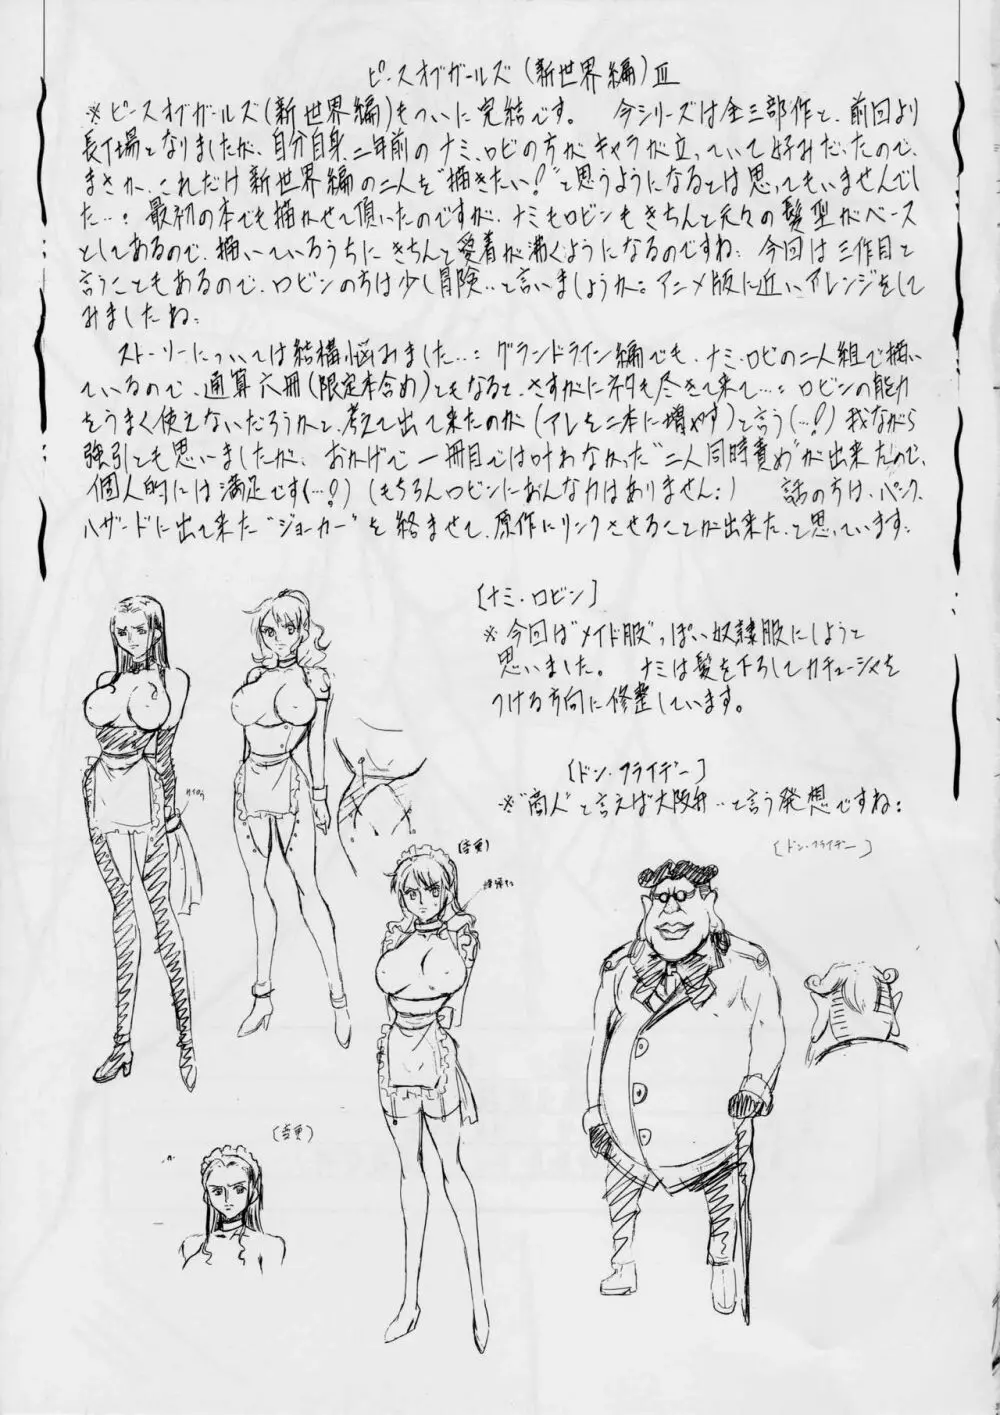 ピースオブガールズ(新世界編)Ⅲ
※ピースオブガールズ(新世界編)もついに完結です。 今シリーズは全三部作と、前回より
長丁場となりましたが、自分自身、二年前のナミ、ロビの方がキャラが立っていて好みだったので、
まさか、これだけ新世界編の二人を“描きたい!”と思うようになるとは思ってもいませんでし
た…: 最初の本でも描かせて頂いたのですが、ナミもロビンもきちんと元々の髪型がベース
としてあるので、描いているうちにきちんと愛着が沸くようになるのですね: 今回は三作目と
言うこともあるので、ロビンの方は少し冒険…と言いましょうか。アニメ版に近いアレンジをして
みましたね:
ストーリーについては結構悩みました…: グランドライン編でも、ナミ・ロビの二人組で描い
ているので、通算六冊(限定本含め)ともなると、さすがにネタも尽きて来て…: ロビンの能力
をうまく使えないだろうかと、考えて出て来たのが(アレを二本に増やす)と言う(…!)我ながら
強引とも思いましたが、おかげで一冊目では叶わなかった“二人同時責め”が出来たので、
個人的には満足です(…!)(もちろんロビンにあんな力はありません:) 話の方は、パンク
ハザードに出て来た“ジョーカー”を絡ませて、原作にリンクさせることが出来た、と思っています:
[ナミ・ロビン]
※今回は“メイド服”っぽい奴隷服にしようと
思いました。 ナミは髪を下ろしてカチューシャを
つける方向に修整しています。
[ドン・フライデー]
※“商人”と言えば大阪弁…と言う発想ですね:
[ドン・フライデー]
(変更)
(変更)